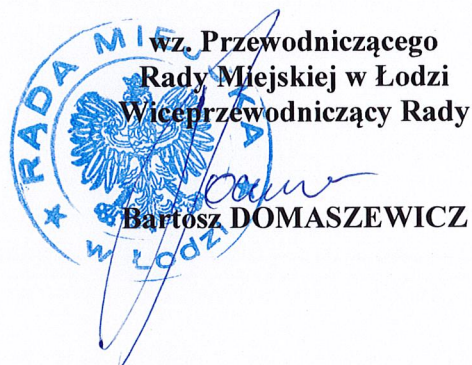 wz. Przewodniczącego
Rady Miejskiej w Łodzi
Wiceprzewodniczący Rady
Bartosz DOMASZEWICZ
RADA MIEJSKA
w Łodzi